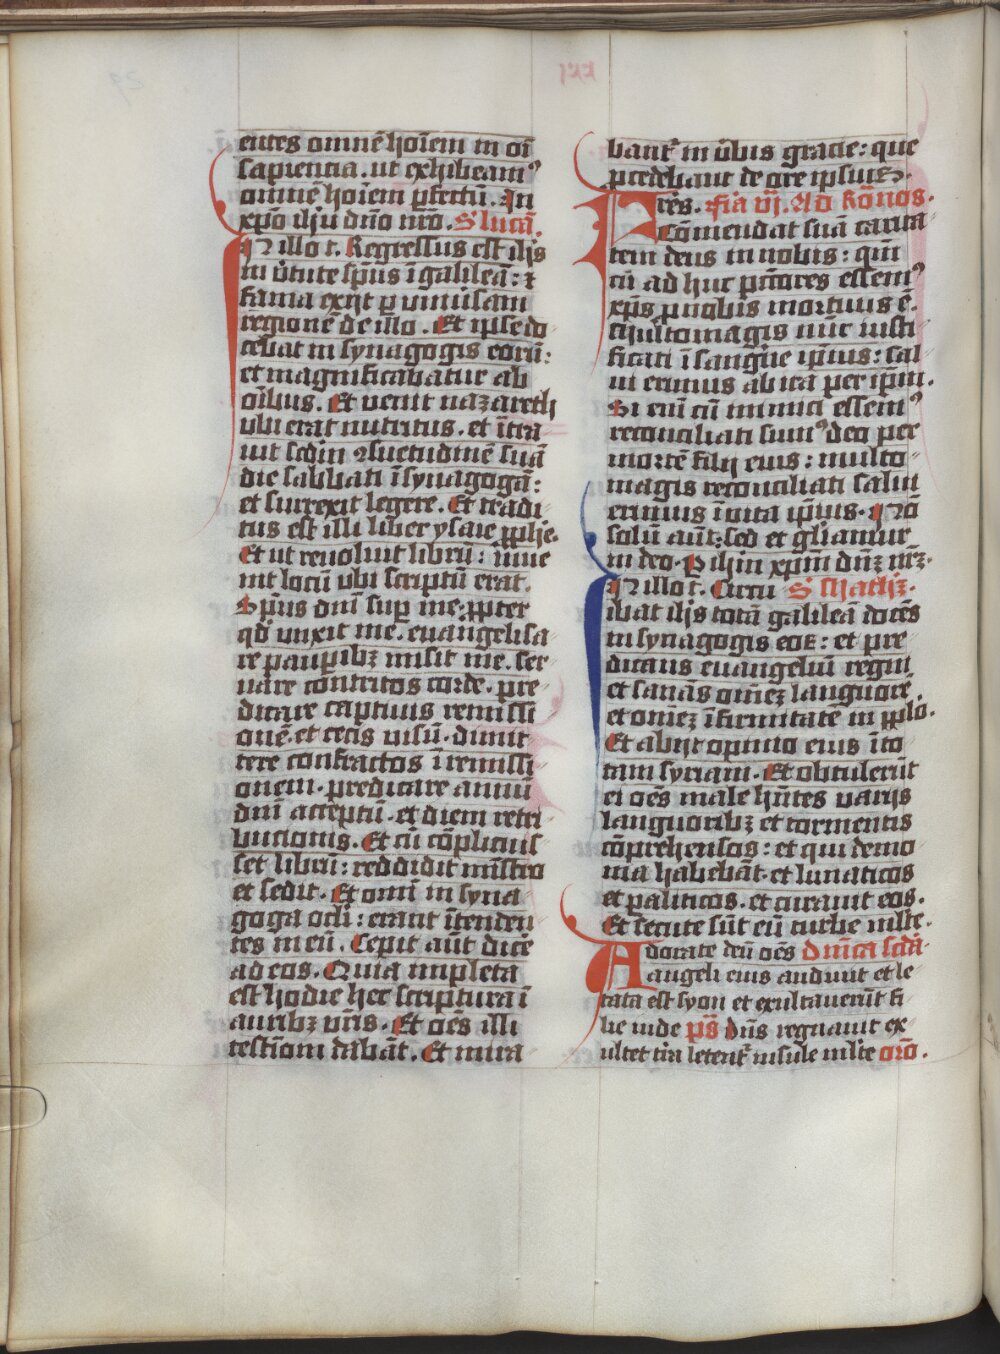 entes omnē hoīem in oī
sapiencia. ut exhibeamꝰ
omnē hoīem ꝑfectū. In
xp̄o ihu dn̄o nr̄o. S lucā.
IN illo t̄. Regressus est ihs
in v̄tute sp̄us ī galileā: ⁊
fama exijt ꝑ vniūsam
regionē de illo. Et ipse do
cebat in synagogis eorū:
et magnificabatur ab
oībus. Et venit nazareth
vbi erat nutritus. et ītra
uit scdm ꝯsuetudinē suā
die sabbati ī synagogā:
et surrexit legere. Et tradi
tus est illi liber ysaie ꝓphe.
Et ut reuoluit librū: inue
nit locū vbi scriptū erat.
Sp̄us dn̄i suꝑ me. ꝓpter
qd̄ vnxit me. euangelisa
re pauꝑibꝫ misit me. ser
uare contritos corde. pre
dicare captiuis remissi
onē. et cecis visū. dimit
tere confractos ī remissi
onem. predicare annū
dn̄i acceptū. et diem retri
bucionis. Et cū cōplicuis
set librū: reddidit mīstro
et sedit. Et omī in syna
goga oc̄li: erant ītenden
tes in eū. Cepit aūt dicē
ad eos. Quia impleta
est hodie hec scriptura ī
auribꝫ vr̄is. Et oēs illi
testimoī dabāt. Et mira
bant̄ in v̄bis gracie: que
procedebant de ore ipsius.
Fres. Fīa vj. Ad Rōnos.
Cōmendat suā carita
tem deus in nobis: qm̄
cū ad huc pctōres essemꝰ
xp̄s ꝓ nobis mortuus ē.
Multomagis nūc iusti
ficati ī sangūie ipīus: sal
ui erimus ab ira per ipm̄.
Si em̄ cū inimici essemꝰ
reconciliati sumꝰ deo per
mortē filij eius: multo
magis reconciliati salui
erimus ī vita ipīus. Nō
solū aūt: sed et gl̄iamur
in deo. P ihm xpm̄ dn̄ꝫ nr̄ꝫ.
IN illo t̄. Circu S Mathꝫ.
ibat ihs totā galileā docēs
in synagogis eoꝝ: et pre
dicans euangeliū regni
et sanās omēꝫ languorē.
et omēꝫ īfirmitatē in ꝓplo.
Et abijt opinio eius ī to
tam syriam. Et obtulerūt
ei oēs male hn̄tes varijs
languoribꝫ et tormentis
cōprehensos: et qui demo
nia habebāt. et lunaticos
et paliticos. et curauit eos.
Et secute sūt eū turbe mlte.
Adorate deū oēs Dnīca scdā
angeli eius audiuit et le
tata est syon et exultauerūt fi
lie iude ps̄ Dn̄s regnauit ex
ultet tr̄a letent̄ insule mlte or̄o.